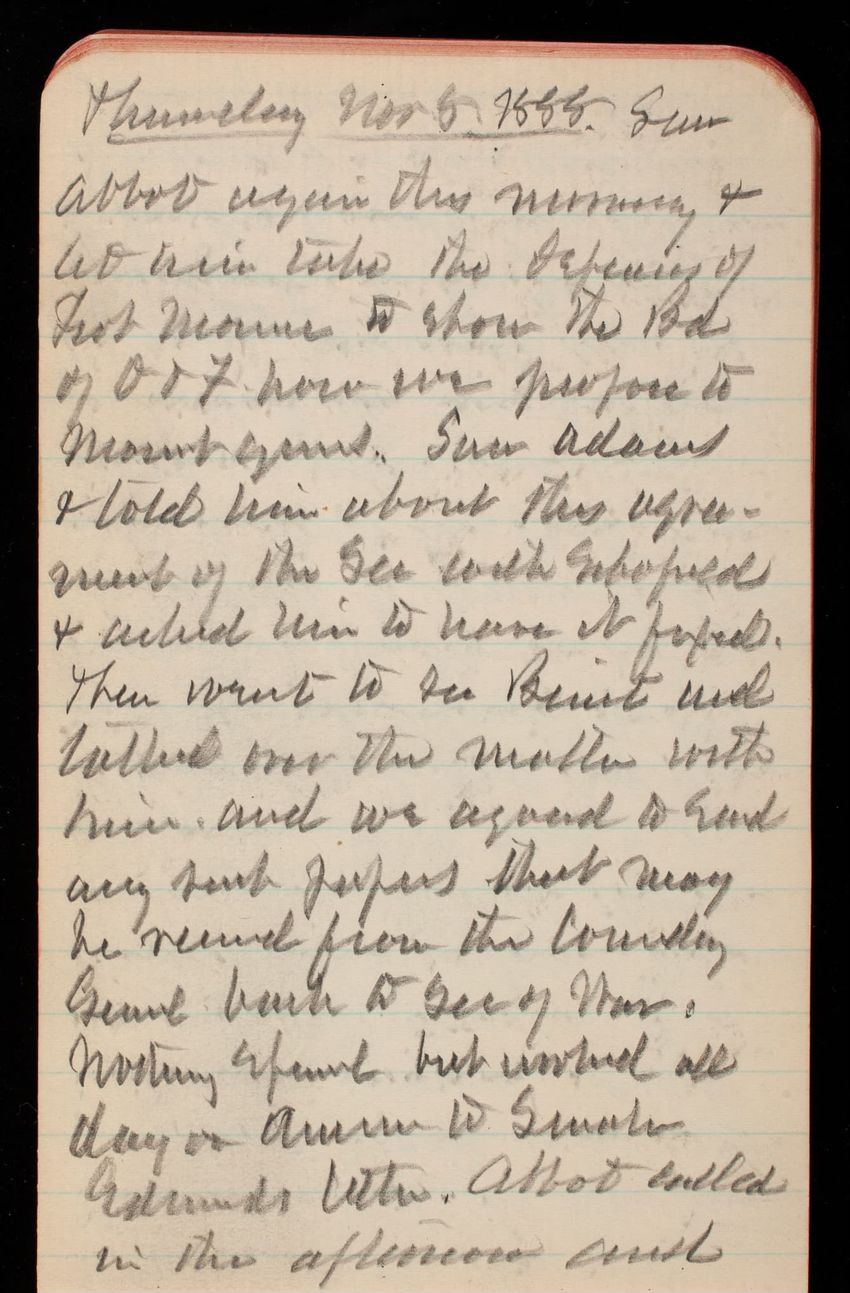 Thursday Nov 8. 1888. Saw
Abbot again this morning &
let him take the defenses of
Fort Monroe to show the Bd
of O & F how we propose to
Mount guns. Saw Adams
& told him about this agree-
ment of the Sec with Schofield
& asked him to have it fixed.
Then went to see Benet and
talked over the matter with
him. and we agreed to send
any such papers that may
be received from the Comdg
Genl back to Sec of War.
Nothing Special but worked all
day on Answer to Senator
Edmunds letter. Abbot called
in the afternoon and